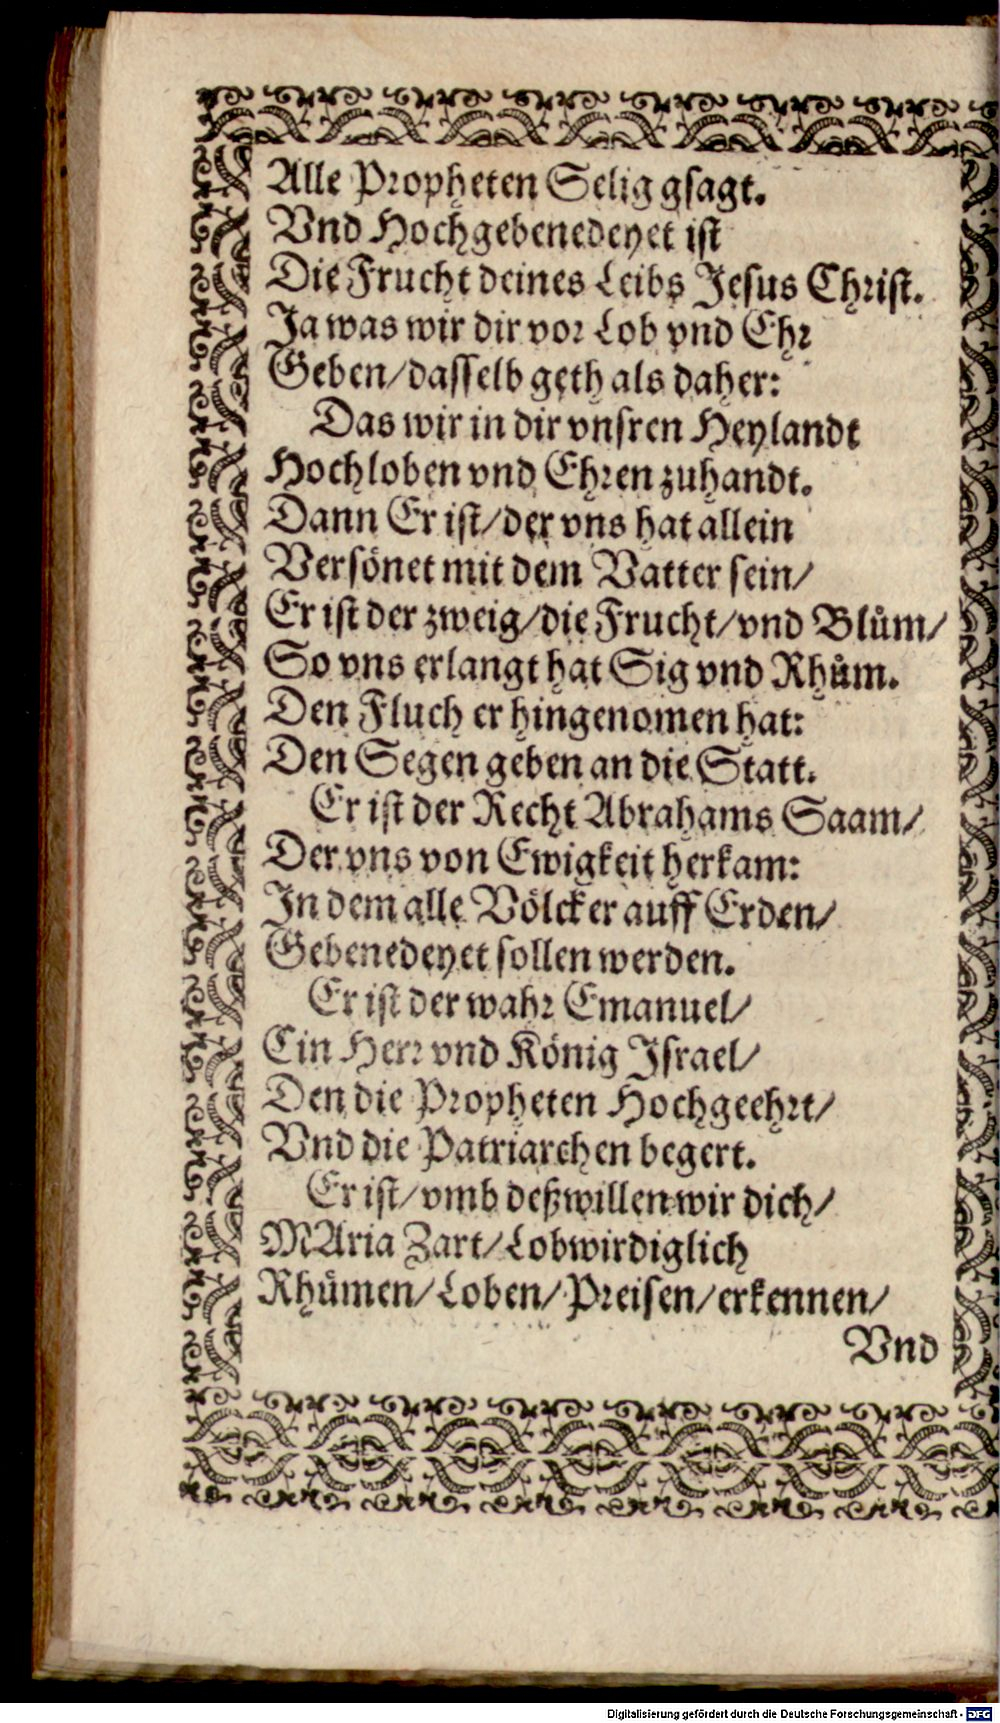 Alle Propheten Selig gsagt.
Vnd Hochgebenedeyet ist
Die Frucht deines Leibs Jesus Christ.
Ja was wir dir vor Lob vnd Ehr
Geben/dasselb geth als daher:
Das wir in dir vnsren Heylandt
Hochloben vnd Ehren zuhandt.
Dann Er ist/der vns hat allein
Versönet mit dem Vatter sein/
Er ist der zweig/die Frucht/vnd Blům/
So vns erlangt hat Sig vnd Rhům.
Den Fluch er hingenomen hat:
Den Segen geben an die Statt.
Er ist der Recht Abrahams Saam/
Der vns von Ewigkeit herkam:
In dem alle Völcker auff Erden/
Gebenedeyet sollen werden.
Er ist der wahr Emanuel/
Ein Herr vnd König Israel/
Den die Propheten Hochgeehrt/
Vnd die Patriarchen begert.
Er ist/vmb deßwillen wir dich/
MAria Zart/Lobwirdiglich
Rhümen/Loben/Preisen/erkennen/
Vnd
Digitalisierung gefördert durch die Deutsche Forschungsgemeinschaft - DFG